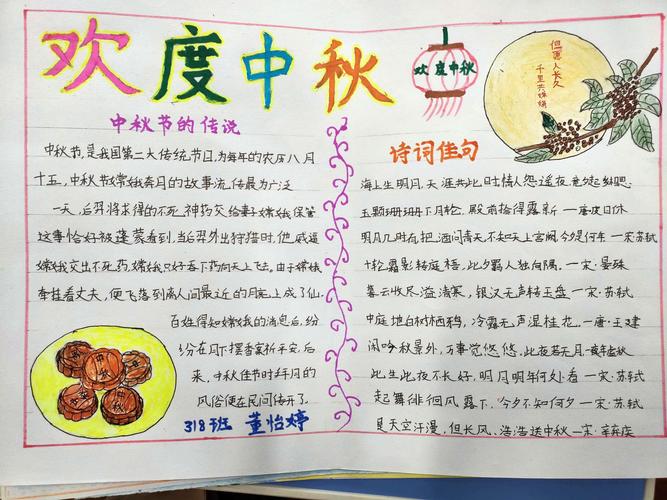 欢度中秋
欢度中秋
但愿人长久
千里共婵娟
中秋节的传说
中秋节,是我国第二大传统节日,为每年的农历八月
十五,中秋节嫦娥奔月的故事流传最为广泛
一天,后羿将求得的不死神药交给妻子嫦娥保管
这事恰好被逢蒙看到,当后羿外出狩猎时,他威逼
嫦娥交出不死药,嫦娥只好吞下药向天上飞去,由于嫦娥
牵挂着丈夫,便飞落到离人间最近的月亮上成了仙.
百姓得知嫦娥的消息后,纷
纷在月下摆香案祈平安,后
来,中秋佳节时拜月的
风俗便在民间传开了.
中秋
318班 董怡婷
诗词佳句
海上生明月,天涯共此时情人怨遥夜,竟夕起
玉颗珊珊下月轮,殿前拾得露新一唐皮日休
明月几时有,把酒问青天,不知天上宫阙,今夕是何年一宋.苏轼
十轮霜影转庭梧,此夕羁人独向隅,一宋.晏殊
暮云收尽溢清寒,银汉无声转玉盘一宋.苏轼
中庭地白树栖鸦,冷露无声湿桂花,一唐.王建
闲吟秋景外,万事觉悠悠,此夜若无月一
此生此夜不长好,明月明年何处看一宋.苏轼
起舞徘徊风露下,今夕不知何夕一宋.苏轼
是天空汗漫,但长风,浩浩送中秋一宋.辛弃疾